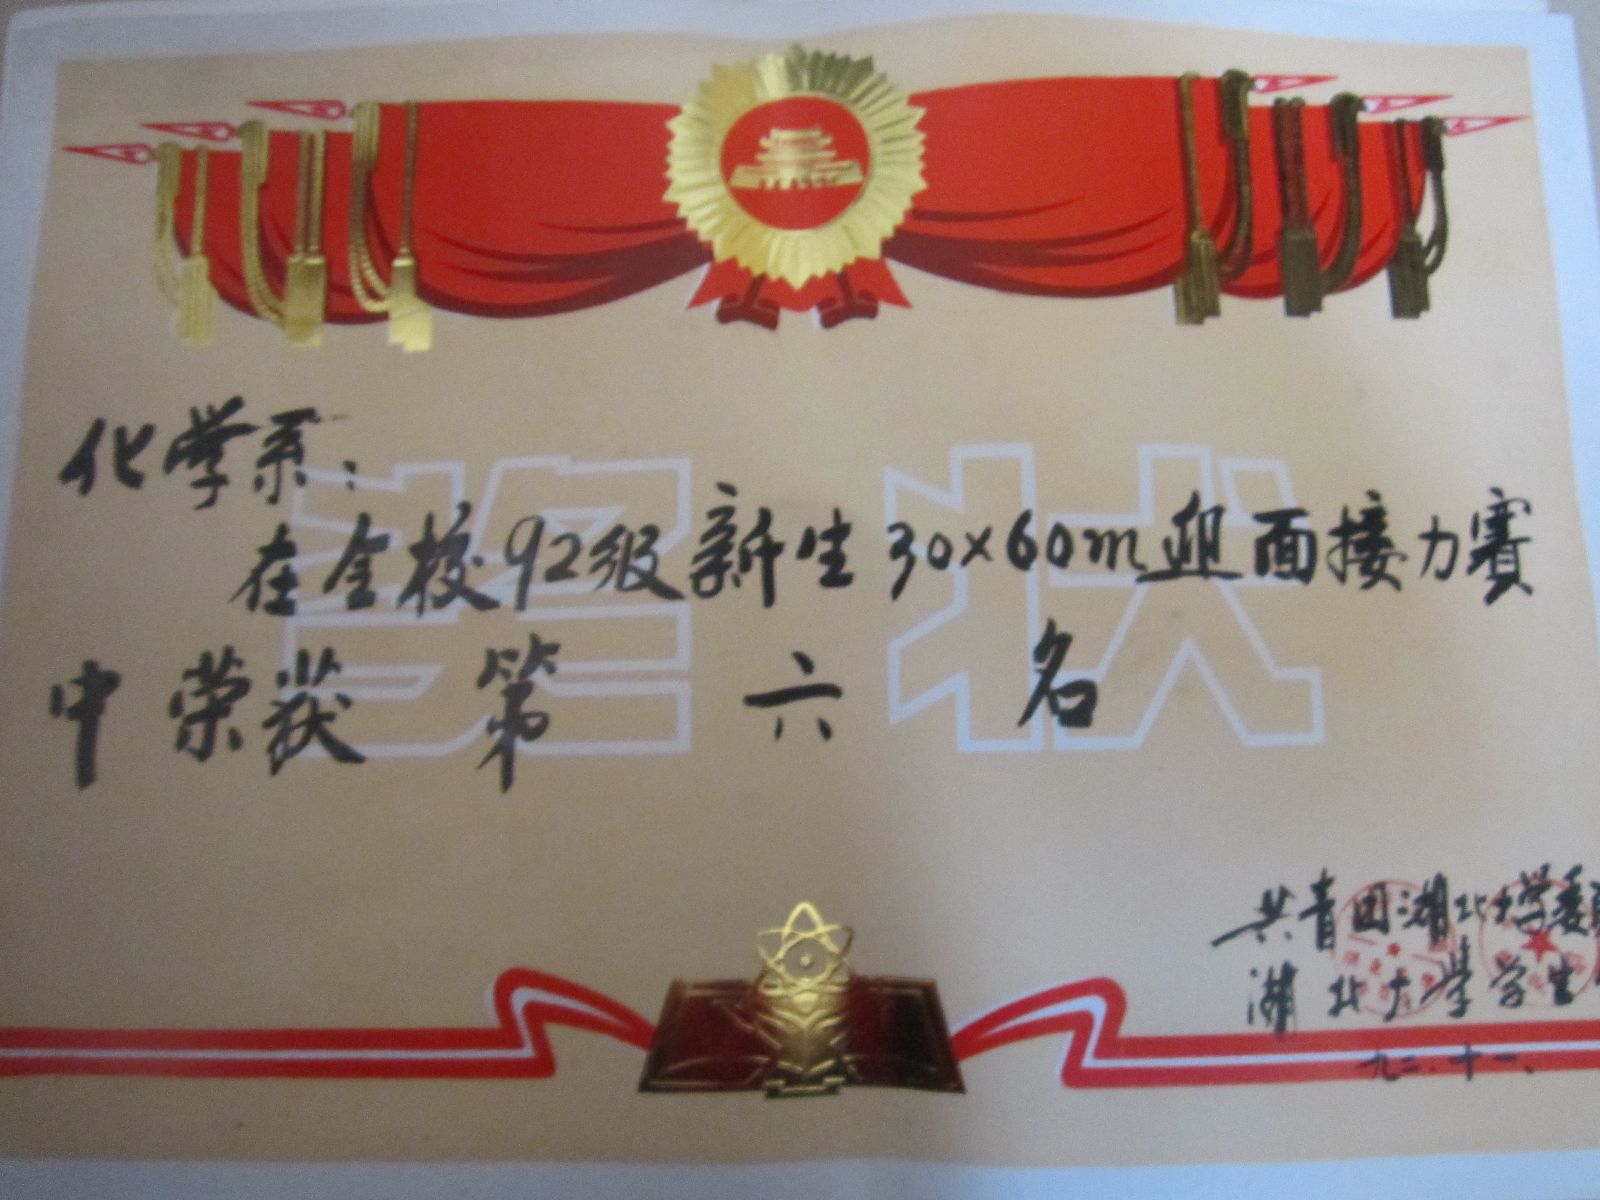 奖状
化学系:
在全校92级新生30×60m迎面接力赛
中荣获 第 六 名
共青团湖北大学委
湖北大学学生
九二.十一.